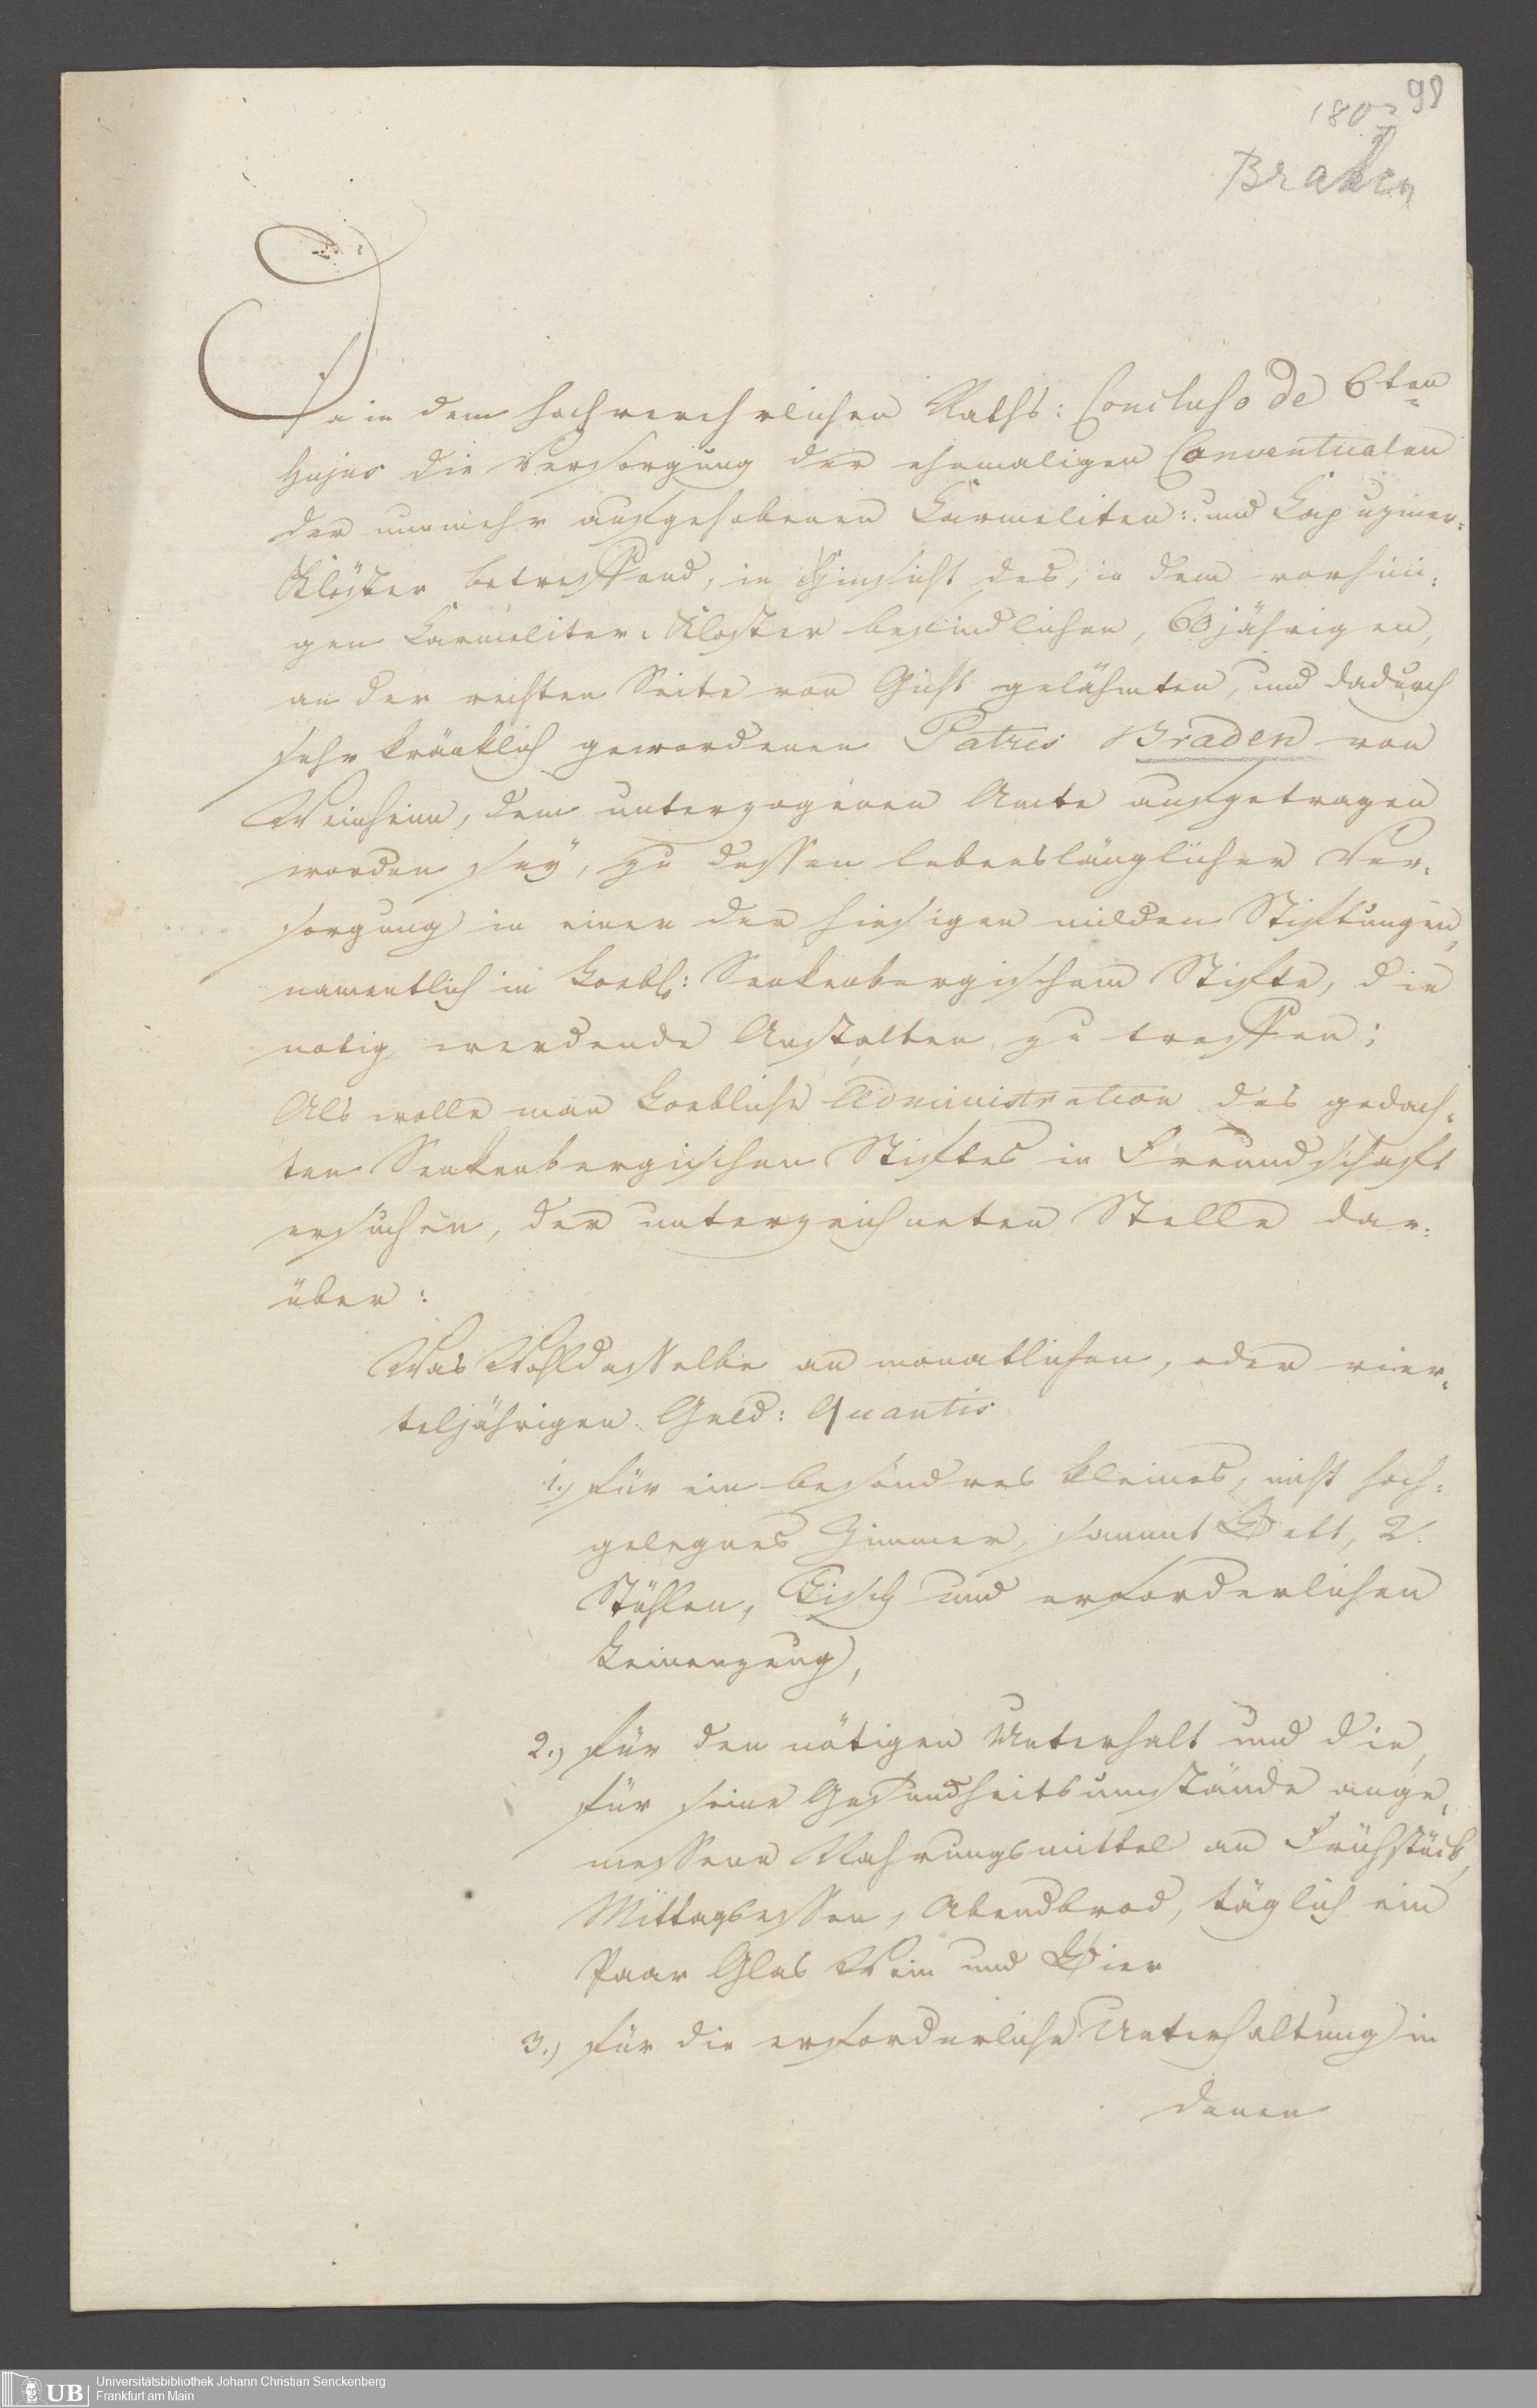 98
1803
Braden
Da in dem hochverehrlichen Raths: Concluso de 6ten
hujus die Versorgung der ehemaligen Conventualen
der nunmehr aufgehobenen Carmeliten: und Capuziner=
Klöster betreffend, in Hinsicht des, in dem vorhini=
gen Carmeliter Kloster befindlichen, 60jährigen,
an der rechten Seite von Gicht gelähmten, und dadurch
sehr kränklich gewordenen Patris Braden von
Weinheim, dem unterzogenen Amte aufgetragen
worden sey, zu dessen lebenslänglicher Ver=
sorgung in einer der hiesigen milden Stiftungen,
namentlich in Loebl: Senkenbergischem Stifte, die
nötig werdende Anstalten zu treffen;
Als wolle man Loebliche Administration des gedach=
ten Senkenbergischen Stiftes in Freundschaft
ersuchen, der unterzeichneten Stelle dar=
über:
Was Wohldasselbe an monatlichen, oder vier=
teljährigen Geld: Quantis
1.) für ein besondres kleines, nicht hoch=
gelegnes Zimmer, sammt Bett, 2.
Stühlen, Tisch und erforderlichen
Leinenzeug,
2.) für den nötigen Unterhalt und die,
für seine Gesundheitsumstände ange=
messene Nahrungsmittel an Frühstück,
Mittagsessen, Abendbrod, täglich ein
Paar Glas Wein und Bier
3.) für die erforderliche Unterhaltung in
denen
UB
Universitätsbibliothek Johann Christian Senckenberg
Frankfurt am Main